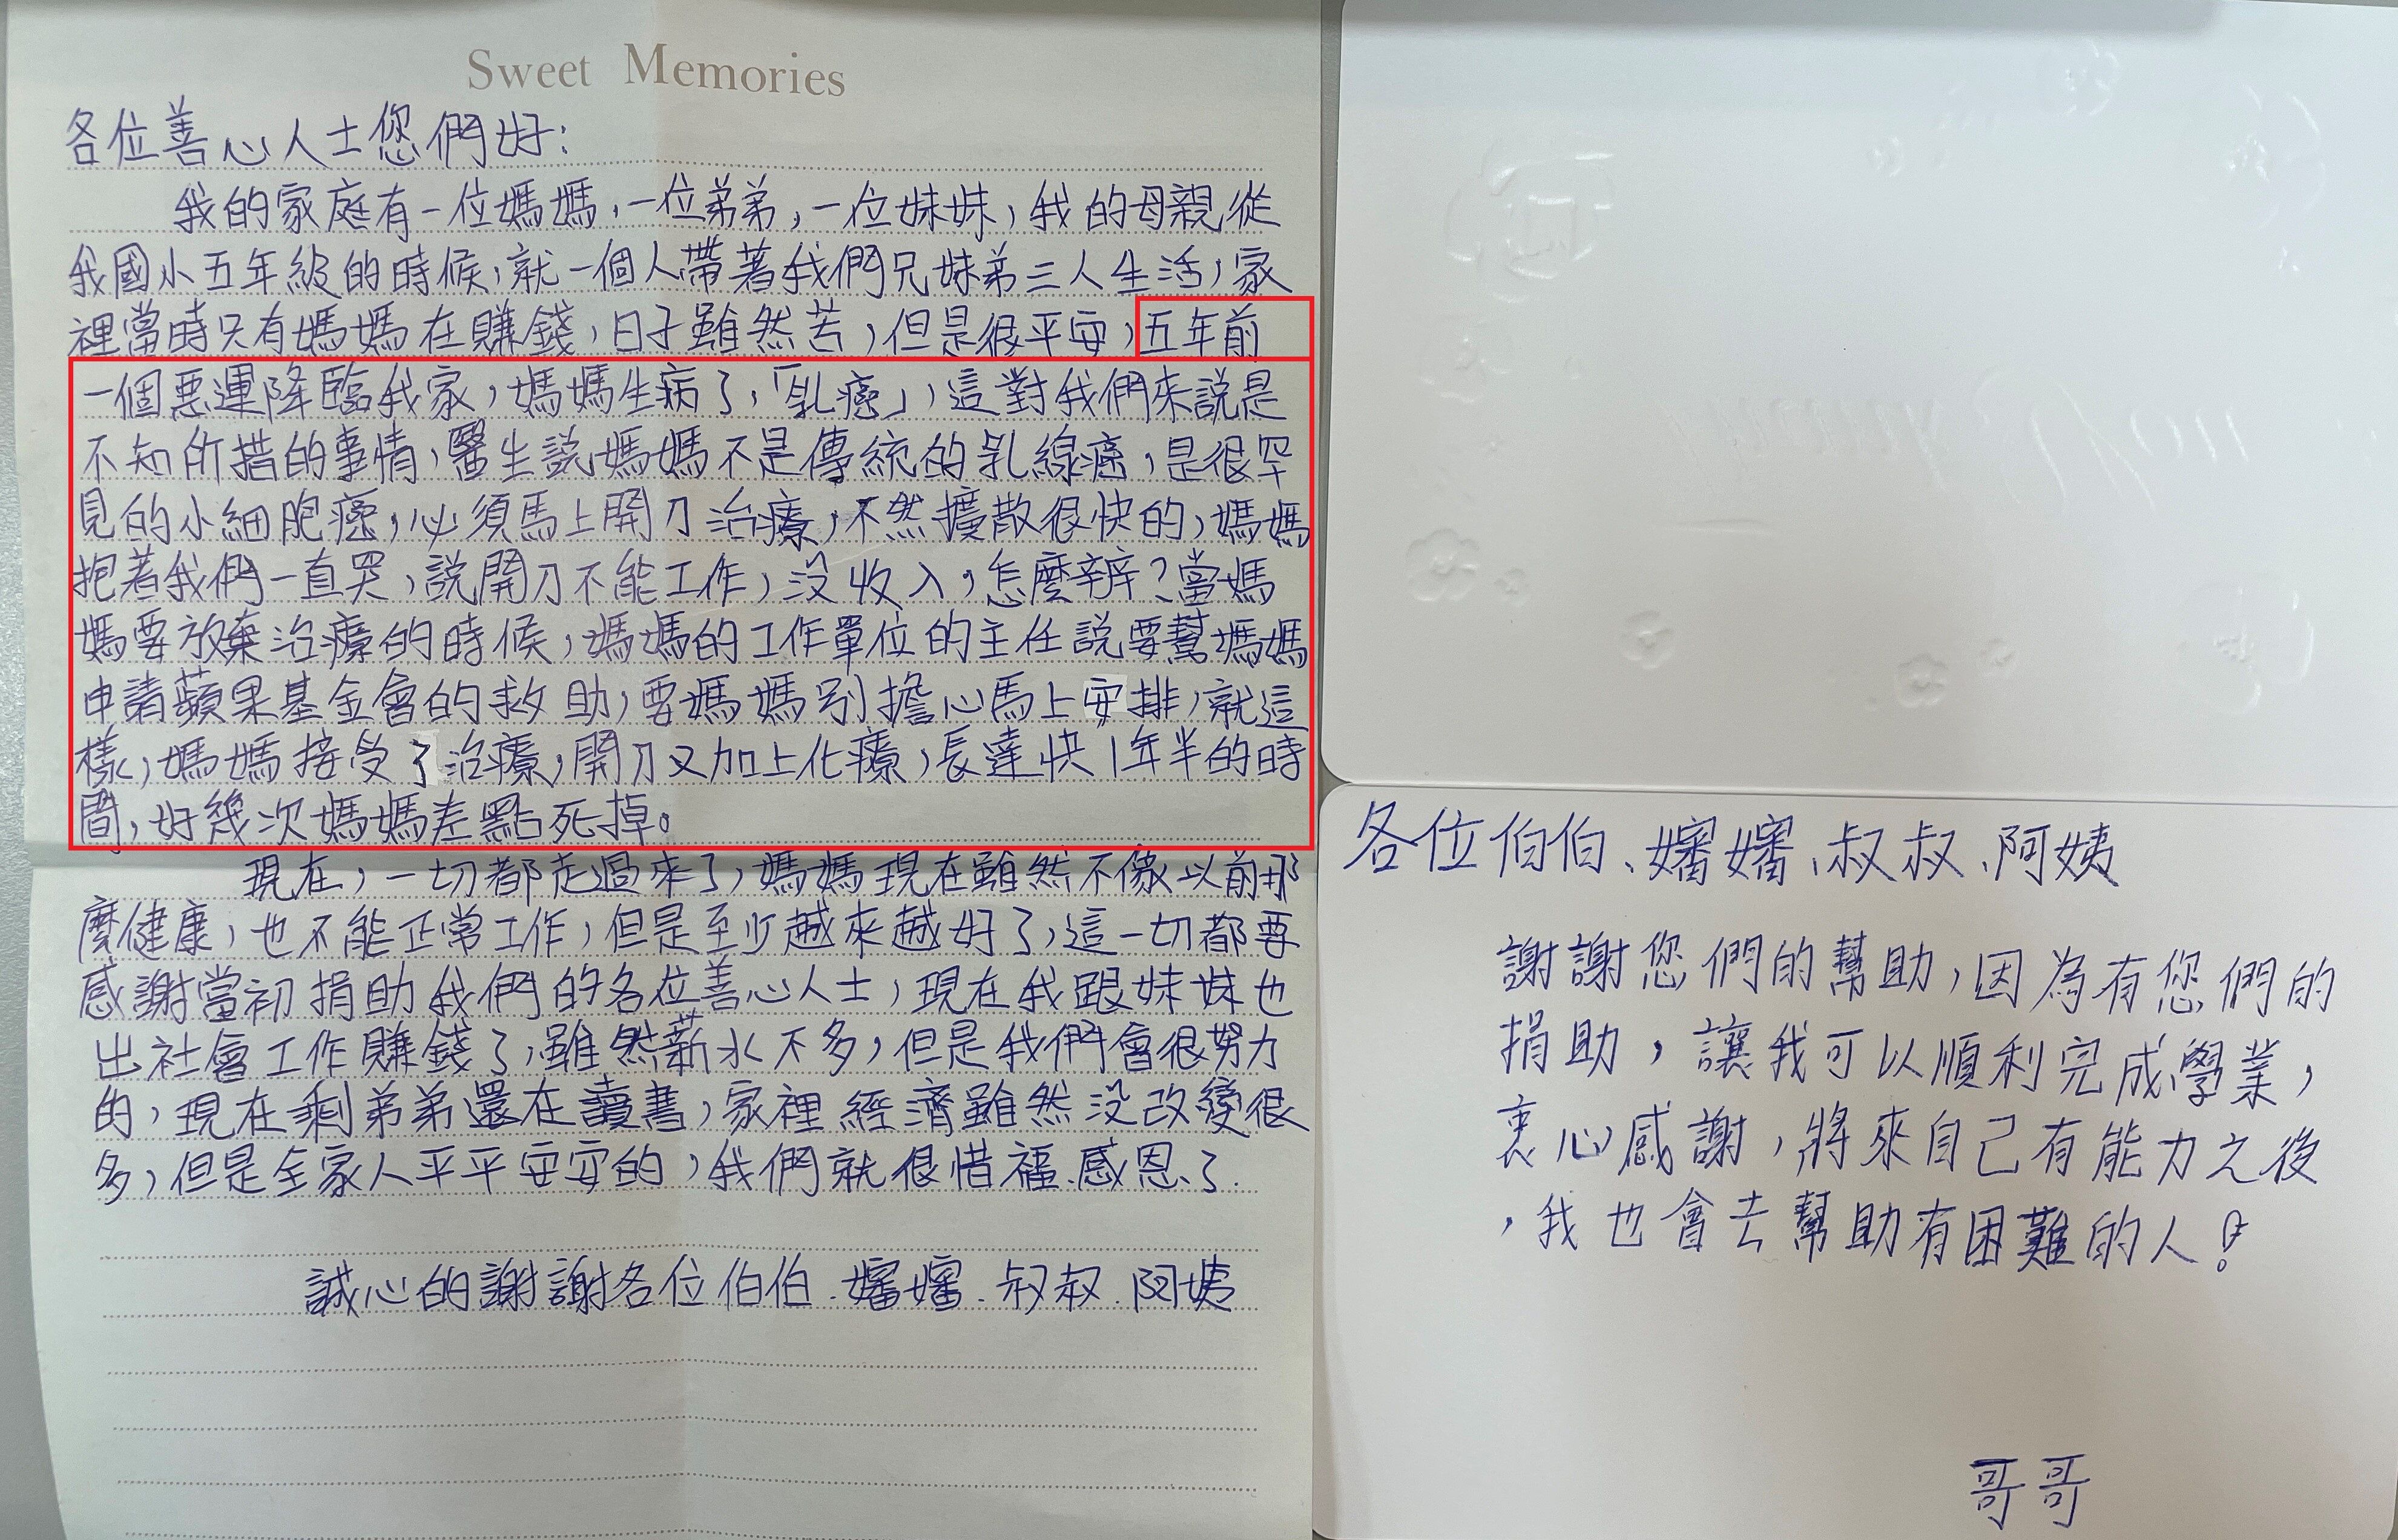 Sweet Memories
各位善心人士您們好:
我的家庭有一位媽媽,一位弟弟,一位妹妹,我的母親從
我國小五年級的時候,就一個人帶著我們兄妹弟三人生活,家
裡當時只有媽媽在賺錢,日子雖然苦,但是很平安,五年前
一個惡運降臨我家,媽媽生病了,「乳癌」,這對我們來說是
不知所措的事情,醫生說媽媽不是傳統的乳線癌,是很罕
見的小細胞癌,必須馬上開刀治療,不然擴散很快的,媽媽
抱著我們一直哭,說開刀不能工作,沒收入,怎麼辨?當媽
媽要放棄治療的時候,媽媽的工作單位的主任說要幫媽媽
申請蘋果基金會的救助,要媽媽別擔心馬上安排,就這
樣,媽媽接受了治療,開刀又加上化療,長達快1年半的時
間,好幾次媽媽差點死掉。
現在,一切都走過來了,媽媽現在雖然不像以前那
麼健康,也不能正常工作,但是至少越來越好了,這一切都要
感謝當初捐助我們的各位善心人士,現在我跟妹妹也
出社會工作賺錢了,雖然薪水不多,但是我們會很努力
的,現在剩弟弟還在讀書,家裡經濟雖然沒改變很
多,但是全家人平平安安的,我們就很惜福.感恩了.
誠心的謝謝各位伯伯.嬸嬸.叔叔.阿姨
各位伯伯、嬸嬸、叔叔、阿姨
謝謝您們的幫助,因為有您們的
捐助,讓我可以順利完成學業,
衷心感謝,將來自己有能力之後
,我也會去幫助有困難的人!
哥哥